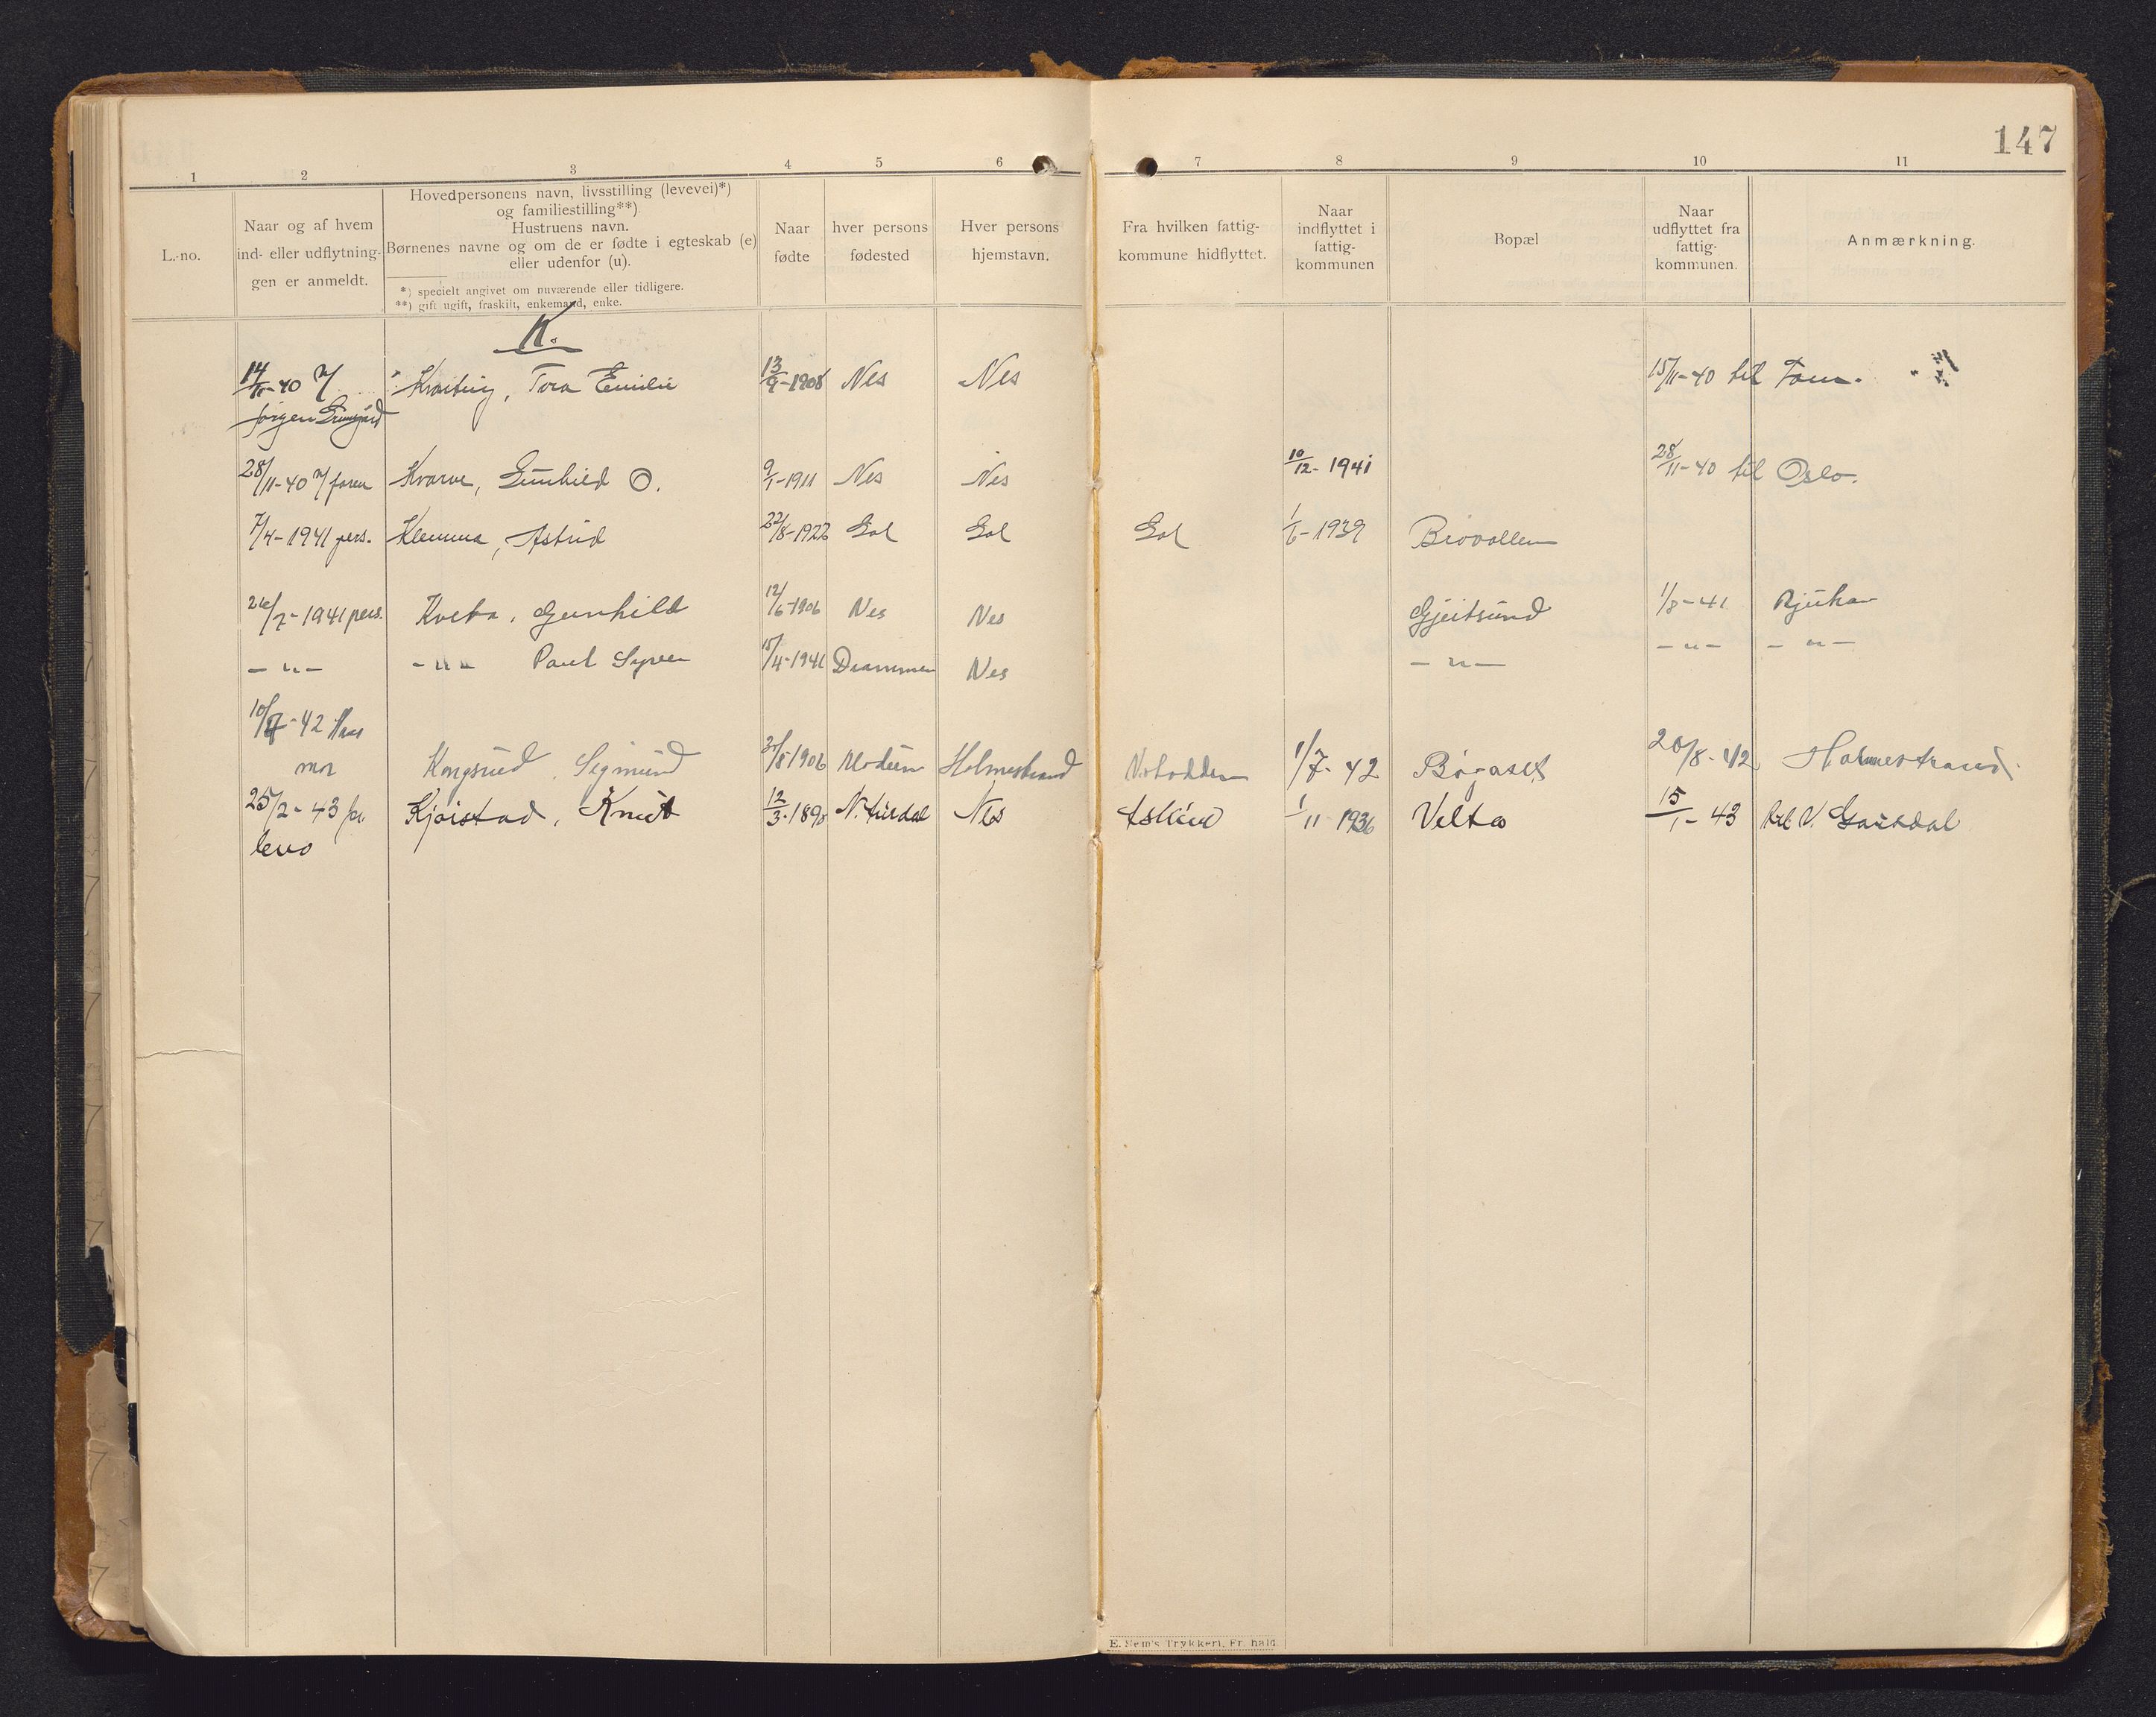 147
1 2 3 4 5 6 7 8 9 10 11
L.-no.
Naar og af hvem
ind- eller udflytnin-
gen er anmeldt.
Hovedpersonens navn, livsstilling (levevei)*)
og familiestilling**)
Hustruens navn.
Børnenes navne og om de er fødte i egteskab (e)
eller udenfor (u).
*) specielt angivet om nuværende eller tidligere.
**) gift ugift, fraskilt, enkemand, enke.
Naar
fødte
hver persons
fødested
Hver persons
hjemstavn.
Fra hvilken fattig-
kommune hidflyttet.
Naar
indflyttet i
fattig-
kommunen
Bopæl
Naar
udflyttet fra
fattig-
kommunen.
Anmærkning.
K.
14/11-40 Tora Emilie 13/9-1908 Nes Nes 15/11-40 til
Jørgen
28/11-40 Kvarve, Gunhild O. 9/1-1911 Nes Nes 10/12-1941 28/11-40 til Oslo.
7/4-1941 pers. Klemma, Astrid 22/8-1922 Gol Gol Gol 1/6-1939 Brovollen
26/7-1941 pers. Gunhild 12/6-1906 Nes Nes Gjeitsund 1/8-41 Rjukan
-"- -"- Paul Syver 15/4-1941 Drammen Nes -"- -"- -"-
10/7-42
mor Kongsrud, Sigmund 1906 Modum Holmestrand Notodden 1/7-42 20/8-42 Holmestrand.
25/2-43 Kjøistad, Knut 12/3-1890 Nes Askim 1/11 1936 Velta 15/1-43 til
E. Sem's Trykkeri, Fr. hald.